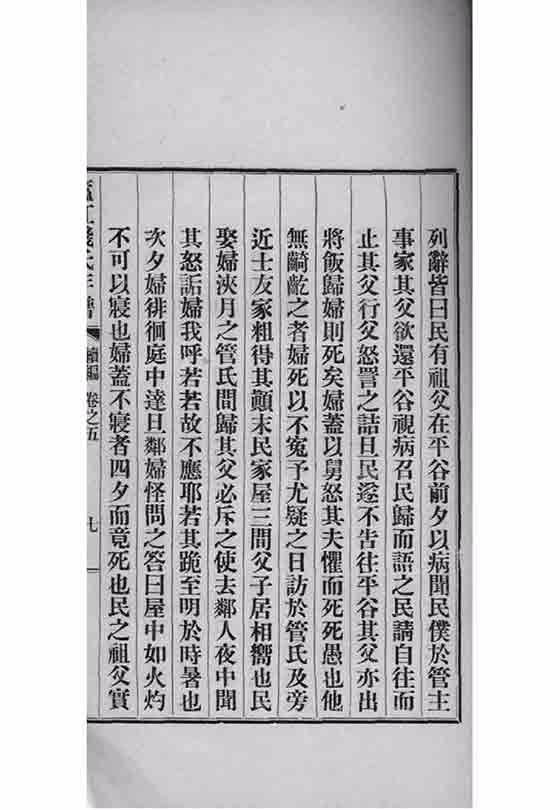 列辭皆曰民有祖父在平谷前夕以病聞民僕於管主
事家其父欲還平谷視病召民歸而語之民請自往而
止其父行父怒詈之詰旦民遂不告往平谷其父亦出
將飯歸婦則死矣婦蓋以舅怒其夫懼而死死愚也他
無齮齕之者婦死以不冤予尤疑之日訪於管氏及旁
近士友家粗得其顛末民家屋三間父子居相嚮也民
娶婦浹月之管氏間歸其父必斥之使去鄰人夜中聞
其怒詬婦我呼若若故不應耶若其跪至明於時暑也
次夕婦徘徊庭中達旦鄰婦怪問之答曰屋中如火灼
不可以寢也婦蓋不寢者四夕而竟死也民之祖父實
江錢氏年譜 續編 卷之五 七